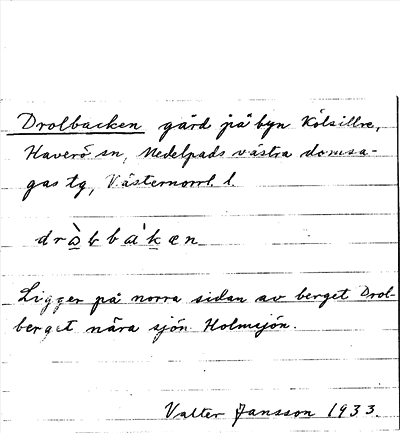 Drolbacken gård på byn Kölsillre,
Haverö sn, Medelpads västra domsa-
gas tg, Västernorrl. l.
dròbbàken
Ligger på norra sidan av berget Drol-
berget nära sjön Holmsjön.
Valter Jansson 1933.